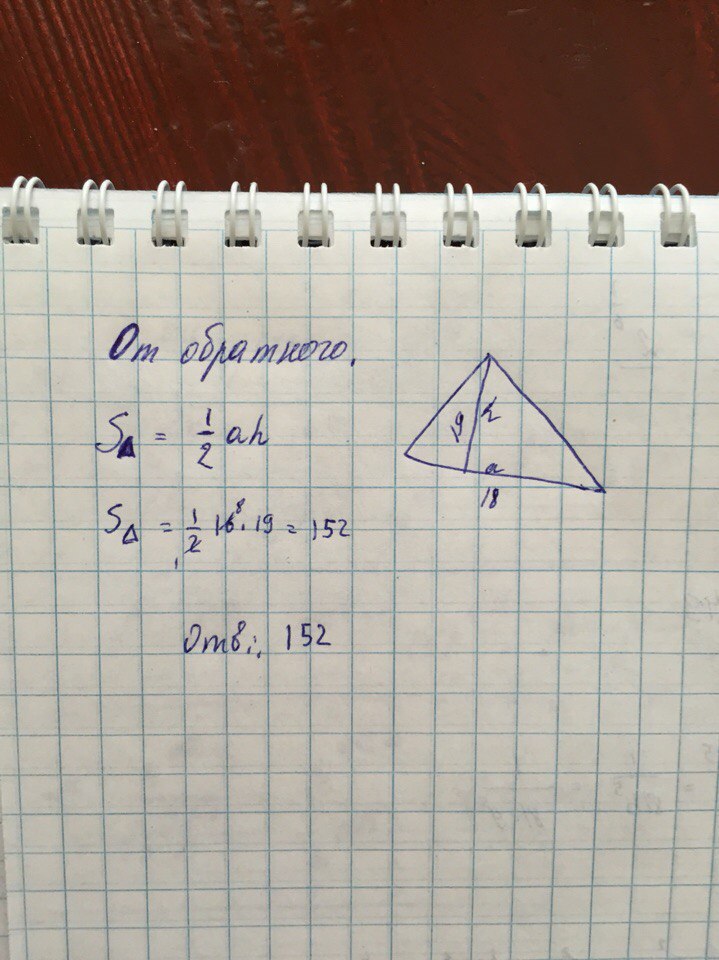 От обратного.
S△ = 1/2 ah
S△ = 1/2 16 8 · 19 = 152
Отв.: 152
19 h
a
18